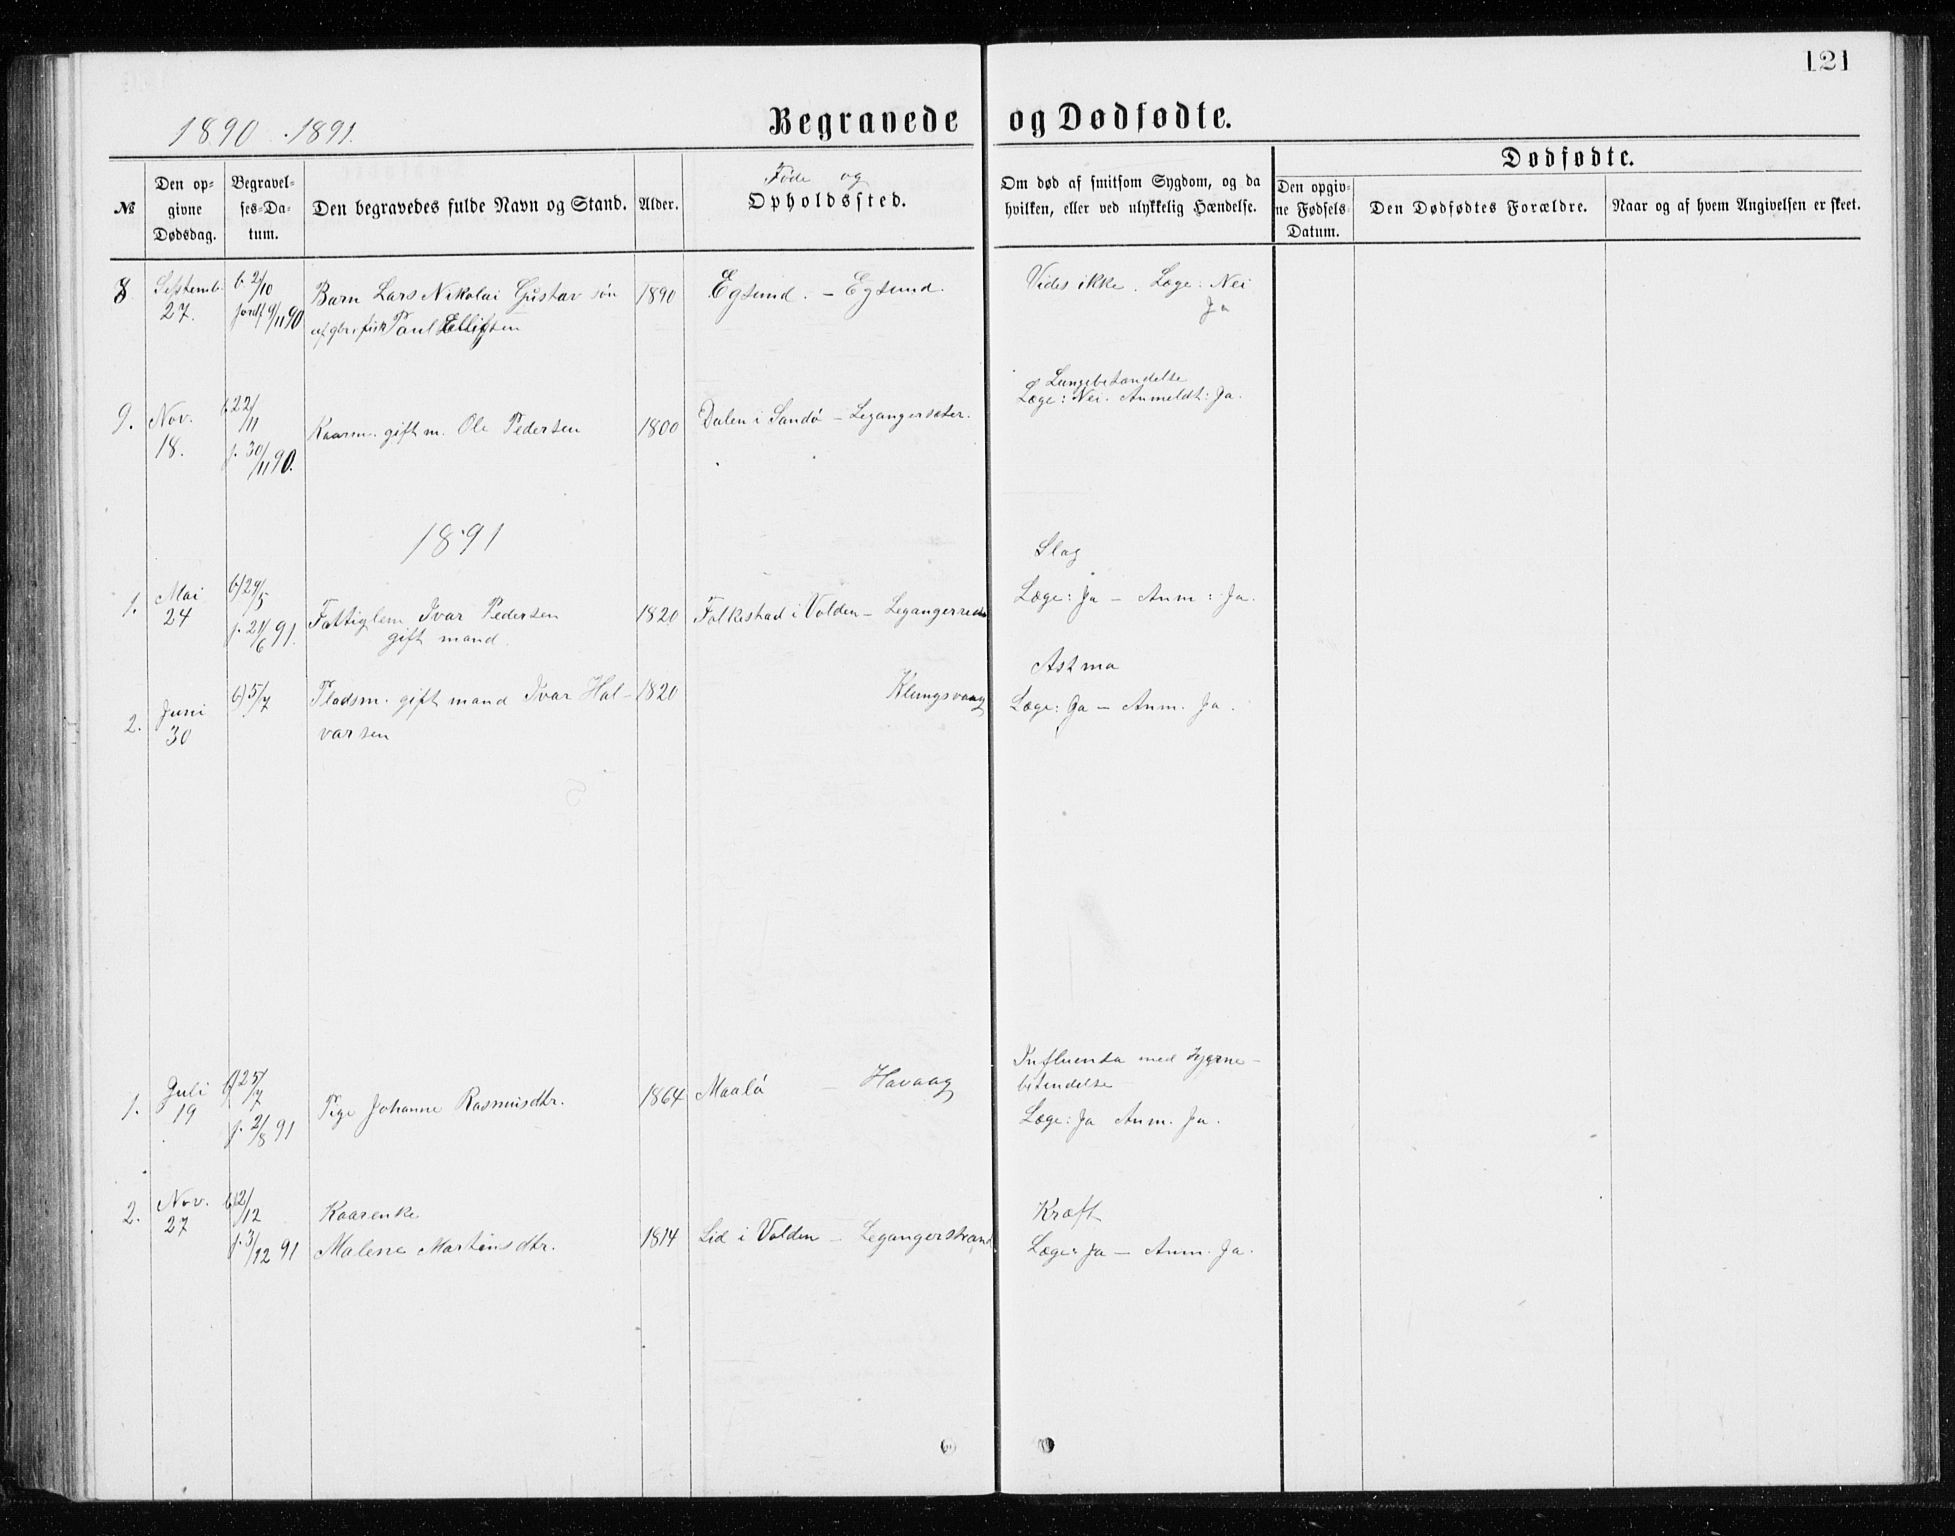 121
1890 - 1891.
Begravede og Dødfødte.
№
Den opgivne Dødsdag.
Begravelses-Datum.
Den begravedes fulde Navn og Stand.
Alder.
Føde og
Opholdssted.
Om død af smitsom Sygdom, og da
hvilken, eller ved ulykkelig Hændelse.
Dødfødte.
Den opgivne Fødsels Datum.
Den Dødfødtes Forældre.
Naar og af hvem Angivelsen er skeet.
8 Septemb. b 2/10 Barn Lars Nikolai Gustav søn 1890 Egsund. - Egsund. Vides ikke. Læge: Nei
27. jordf 9/11 90 af gbr fisk Paul Ellifsen Ja
Lungebetændelse
9. Nov. b 22/11 Kaarm. gift m. Ole Pedersen 1800 Dalen i Sandø - Legangersæter. Læge: Nei. Anmeldt: Ja.
18. j. 30/11 90.
1891
Slag
1. Mai b) 29/5 Fattiglem Ivar Pedersen 1820 Folkestad i Volden - Læge: Ja - Anm: Ja.
24 j. 21/6 91. gift mand.
Astma
2. Juni b) 5/7 Pladsm. gift mand Ivar Hal- 1820 Klungsvaag Læge: Ja - Anm. Ja.
30 varsen
Influenza med Hjerne-
1. Juli b) 25/7 Pige Johanne Rasmusdtr. 1864 Maalø - Havaag betændelse
19 j. 2/8 91 Læge: Ja Anm. Ja.
2. Nov. b) 2/12 Kaarenke Kræft
27 j. 3/12 91 Malene Martinsdtr. 1814 Lid i Volden - Legangerstrand Læge: Ja - Anm. Ja.